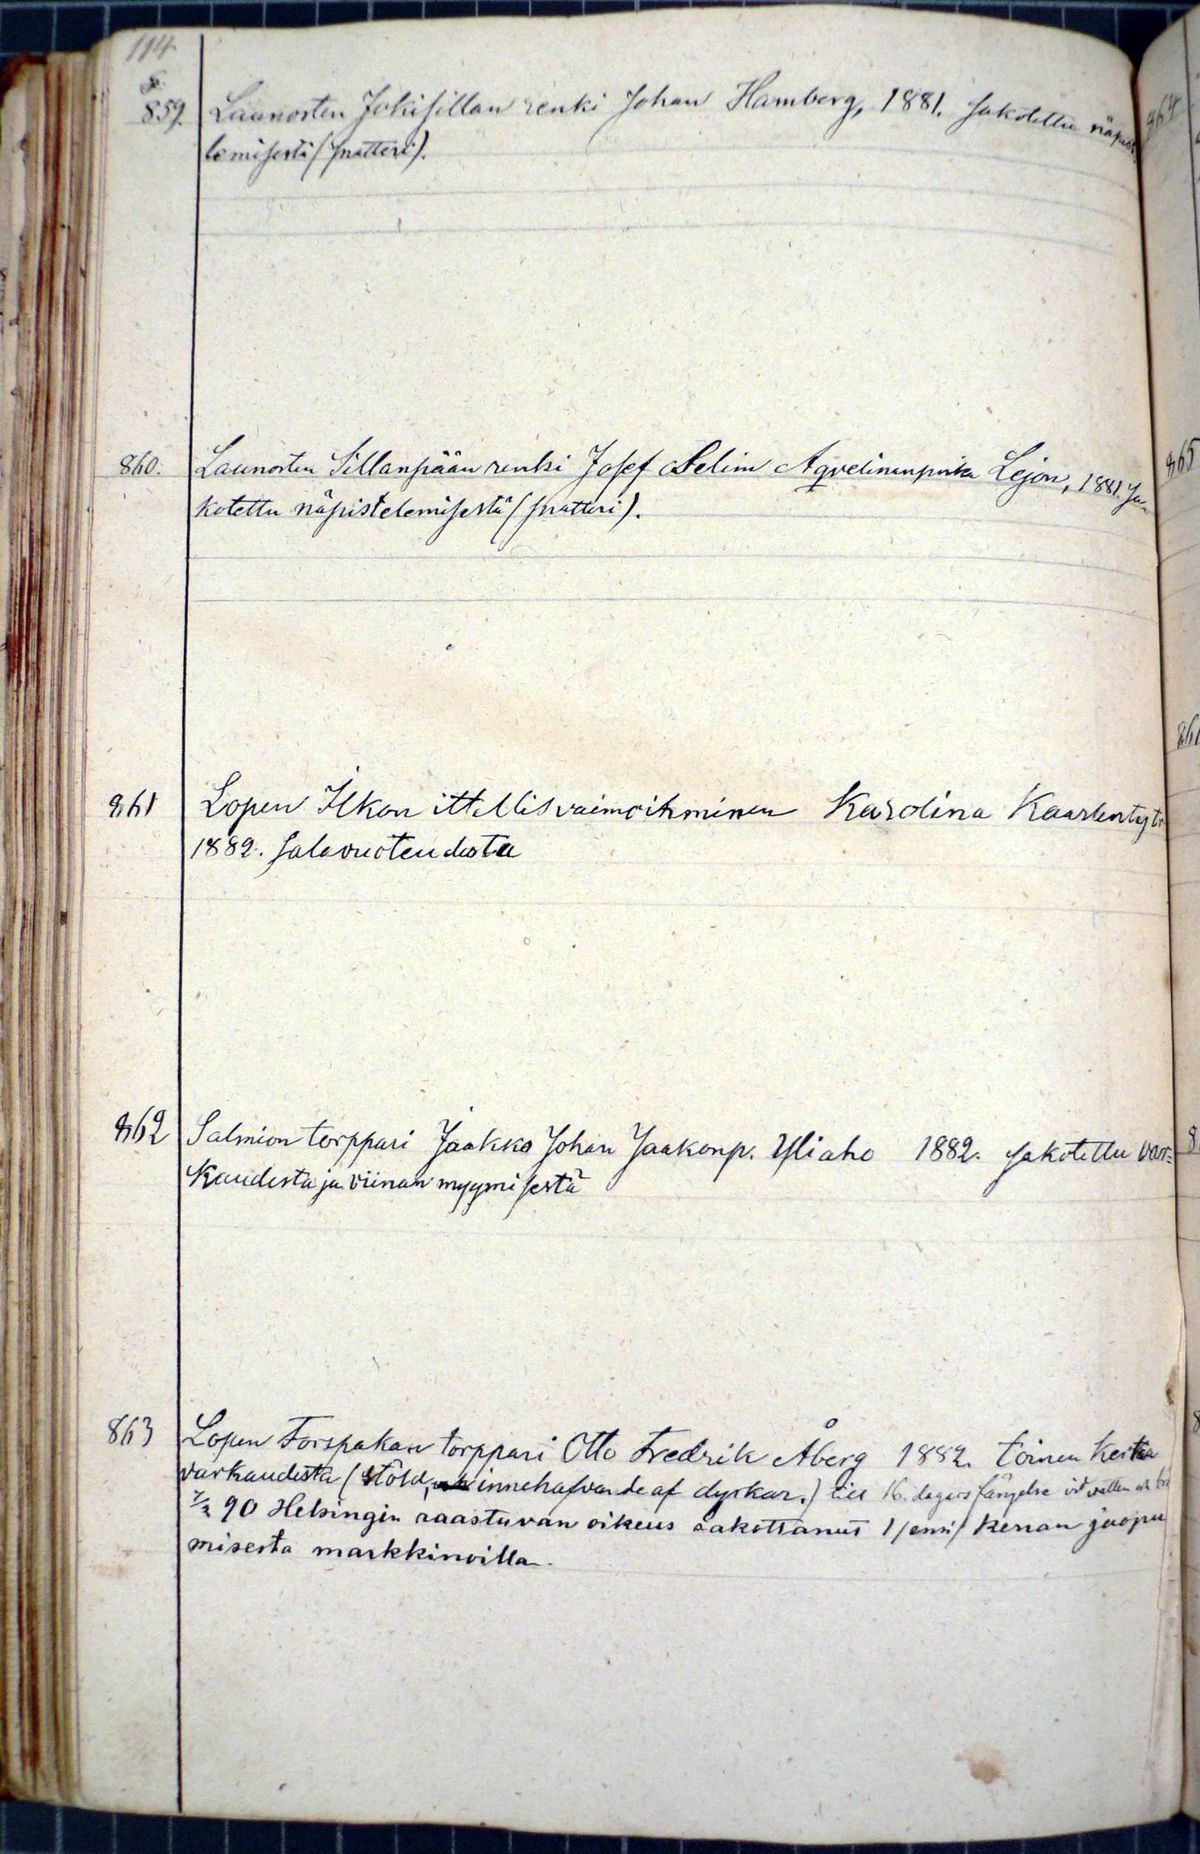 114
§.
859. Launosten Jokisillan renki Johan Hamberg, 1881. sakotettu näpis
lemisesti (snatteri).
860. Launosten Sillanpään renki Josef Selim Aqvelinanpoika Lejon, 1881. sa-
kotettu näpistelemisestä (snatteri).
861 Lopen Ilkon ittellisvaimoihminen Karolina Kaarlentytt
1882. salavuoteudesta
862 Salmion torppari Jaakko Johan Jaakonp. Yliaho 1882. sakotettu var-
kaudesta ja viinan myymisestä
863 Lopen Forspakan torppari Otto Fredrik Åberg 1882. toinen kerta
varkaudesta (stöld, innehafvande af dyrkar.) till 16. dagars fängelse vid vatten och
90 Helsingin raastuvan oikeus sakottanut 1/ensi/ kerran juopu
misesta markkinoilla.
864
865